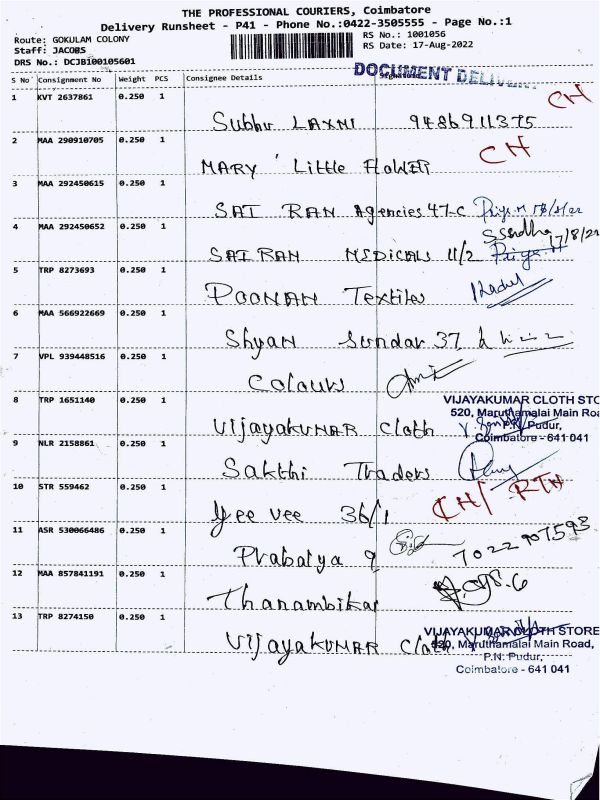 THE PROFESSIONAL COURIERS, Coimbatore
Delivery Runsheet - P41 - Phone No.:0422-3505555 - Page No.:1
Route: GOKULAM COLONY
Staff: JACOBS
DRS No.: DCJB100105601
RS No.: 1001056
RS Date: 17-Aug-2022
DOCUMENT DELIVERY
S No Consignment No Weight PCS Consignee Details Signature
1 KVT 2637861 0.250 1 CH
Subhu LAXMI 9486911375
2 MAA 290910705 0.250 1 CH
MARY Little FloWER
3 MAA 292450615 0.250 1
SAI RAM Agencies 47-C
4 MAA 292450652 0.250 1 17/8/22
SAI RAM MEDICALS 11/2
5 TRP 8273693 0.250 1
POONAM Textiles
6 MAA 566922669 0.250 1
Shyam Sundar 37
7 VPL 939448516 0.250 1
Colours
8 TRP 1651140 0.250 1 VIJAYAKUMAR CLOTH STO
520, Maruthamalai Main Roa
P.N. Pudur,
VijayaKUMAR Cloth
Coimbatore - 641 041
9 NLR 2158861 0.250 1
Sakthi Traders
10 STR 559462 0.250 1 CH/ RTH
Yee vee 36/1
11 ASR 530066486 0.250 1
7022907593
12 MAA 857841191 0.250 1
Thanambikai
13 TRP 8274150 0.250 1 VIJAYAKUMAR CLOTH STORE
520, Maruthamalai Main Road,
VijayaKUMAR Cloth
P.N. Pudur,
Coimbatore - 641 041